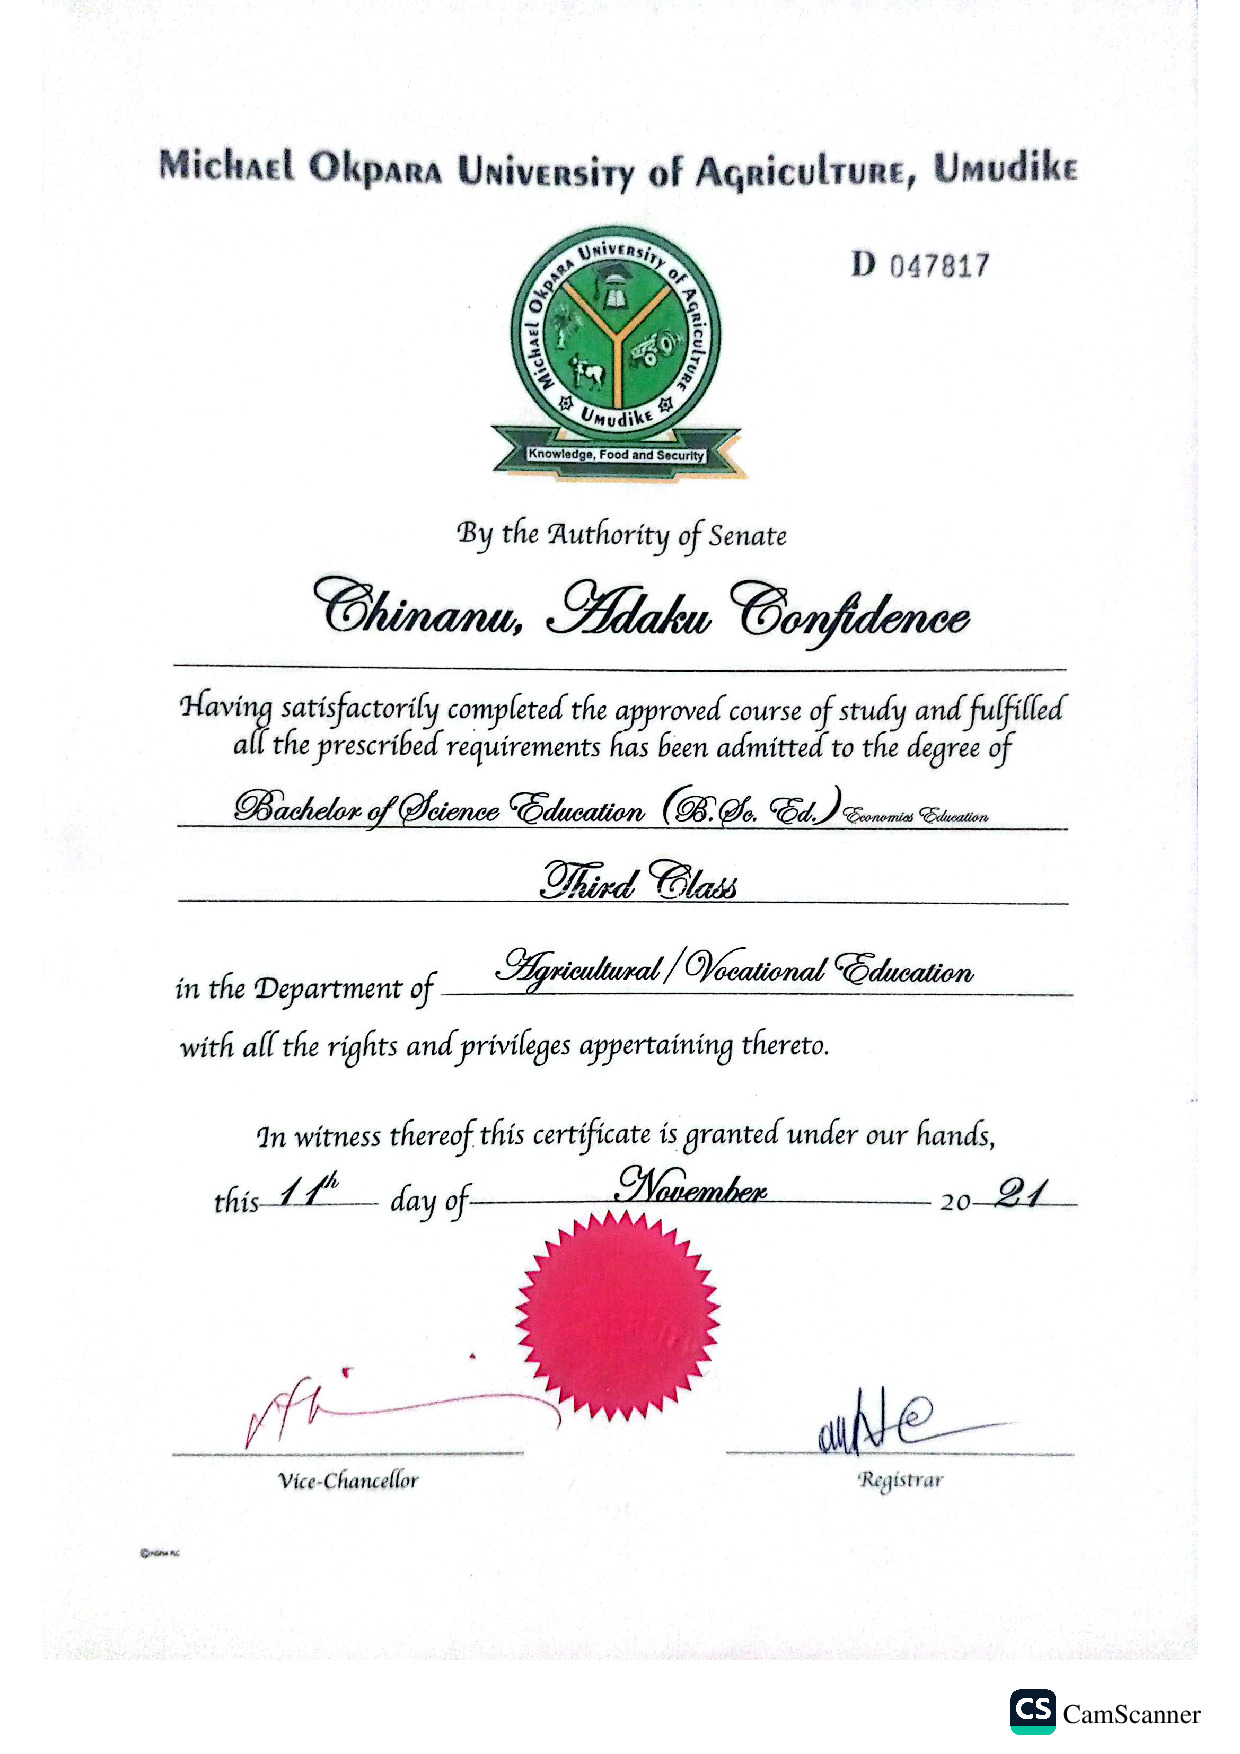 Michael Okpara University of Agriculture, Umudike
D 047817
Michael Okpara University of Agriculture
Umudike
Knowledge, Food and Security
By the Authority of Senate
Chinanu, Adaku Confidence
Having satisfactorily completed the approved course of study and fulfilled
all the prescribed requirements has been admitted to the degree of
Bachelor of Science Education (B.Sc. Ed.) Economics Education
Third Class
in the Department of Agricultural/Vocational Education
with all the rights and privileges appertaining thereto.
In witness thereof this certificate is granted under our hands,
this 11th day of November 2021
Vice-Chancellor
Registrar
CS CamScanner